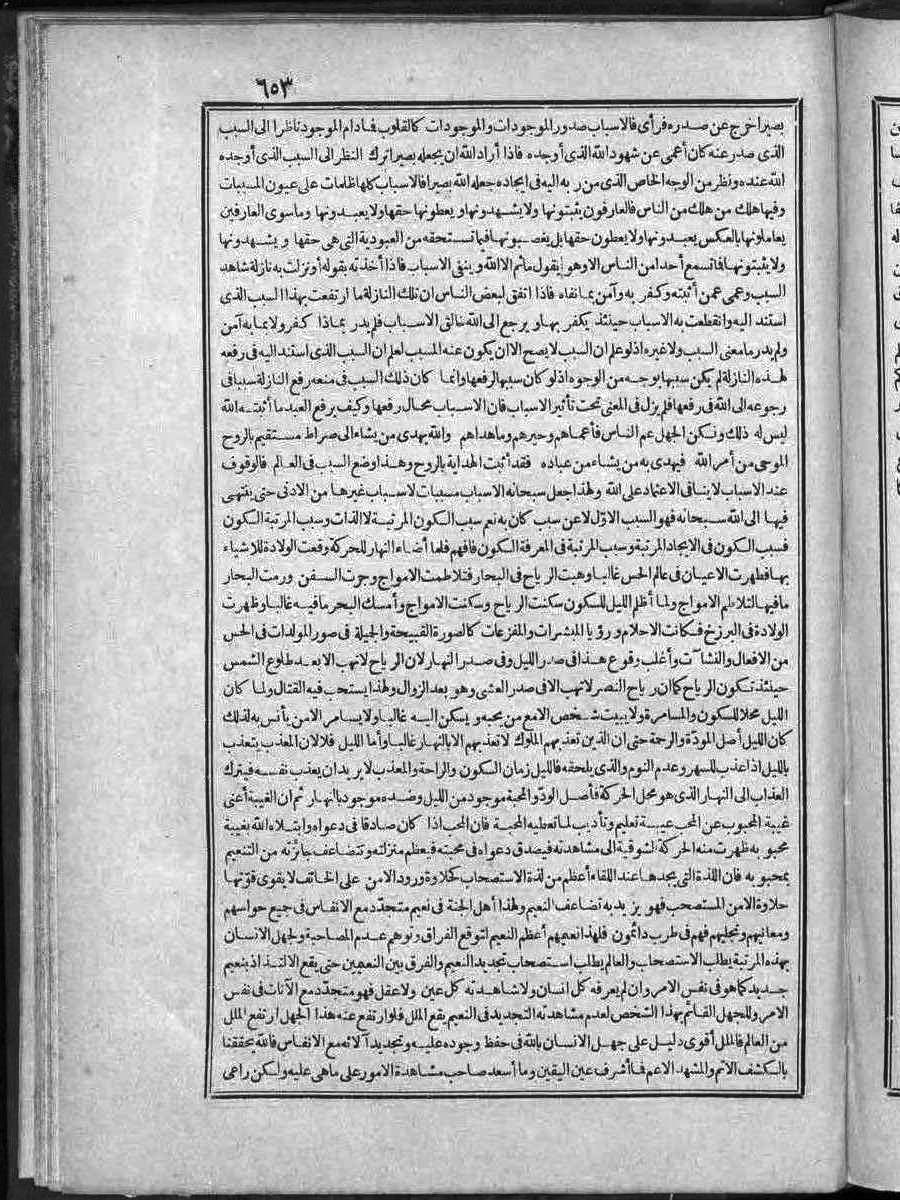 ٦٥٣
بصيرا خرج عن صدره فرأى فالاسباب صدور الموجودات والموجودات كالقلوب فمادام الموجود ناظرا الى السبب
الذى صدر عنه كان أعمى عن شهود الله الذى أوجده فاذا أراد الله ان يجعله بصيرا ترك النظر الى السبب الذى أوجده
الله عنده ونظر من الوجه الخاص الذى من ربه اليه فى ايجاده جعله الله بصيرا فالاسباب كلها ظلمات على عيون المسببات
وفيها هلك من هلك من الناس فالعارفون يثبتونها ولا يشهدونها ويعطونها حقها ولا يعبدونها وما سوى العارفين
يعاملونها بالعكس يعبدونها ولا يعطون حقها بل يغصبونها فيما تستحقه من العبودية التى هى حقها ويشهدونها
ولا يثبتونها فما تسمع أحدا من الناس الا وهو يقول ما ثم الا الله وينفى الاسباب فاذا أخذته بقوله أو نزلت به نازلة شاهد
السبب وعمى عمن أثبته وكفر به وآمن بما نفاه فاذا اتفق لبعض الناس ان تلك النازلة ما ارتفعت بهذا السبب الذى
استند اليه وانقطعت به الاسباب حينئذ يكفر بها ويرجع الى الله خالق الاسباب فلم يدر بماذا كفر ولا بما به آمن
ولم يدر ما معنى السبب ولا غيره اذ لو علم ان السبب لا يصح الا ان يكون عنه المسبب لعلم ان السبب الذى استند اليه فى رفعه
لهذه النازلة لم يكن سببها بوجه من الوجوه اذ لو كان سببها لرفعها وانما كان ذلك السبب فى منعه رفع النازلة سببا فى
رجوعه الى الله فى رفعها فلم يزل فى المعنى تحت تأثير الاسباب فان الاسباب محال رفعها وكيف يرفع العبد ما أثبته الله
ليس له ذلك ولكن الجهل عم الناس فأعماهم وحيرهم وما هداهم والله يهدى من يشاء الى صراط مستقيم بالروح
الموحى من أمر الله فيهدى به من يشاء من عباده فقد أثبت الهداية بالروح وهذا وضع السبب فى العالم فالوقوف
عند الاسباب لا ينافى الاعتماد على الله ولهذا جعل سبحانه الاسباب مسببات لاسباب غيرها من الادنى حتى ينتهى
فيها الى الله سبحانه فهو السبب الاول لا عن سبب كان به نعم سبب السكون المرتبة لا الذات وسبب المرتبة السكون
فسبب السكون فى الايجاد المرتبة وسبب المرتبة فى المعرفة السكون فافهم فلما أضاء النهار للحركة وقعت الولادة للاشياء
بها فظهرت الاعيان فى عالم الحس غالبا وهبت الرياح فى البحار فتلاطمت الامواج وجرت السفن ورمت البحار
ما فيها لتلاطم الامواج ولما أظلم الليل للسكون سكنت الرياح وسكنت الامواج وأمسك البحر ما فيه غالبا وظهرت
الولادة فى البرزخ فكانت الاحلام ورؤيا المبشرات والمفزعات كالصورة القبيحة والجميلة فى صور المولدات فى الحس
من الافعال والنشآت وأغلب وقوع هذا فى صدر الليل وفى صدر النهار لان الرياح لا تهب الا بعد طلوع الشمس
حينئذ تكون الرياح كما ان رياح النصر لا تهب الا فى صدر العشى وهو بعد الزوال ولهذا يستحب فيه القتال ولما كان
الليل محلا للسكون والمسامرة ولا يبيت شخص الا مع من يحبه ويسكن اليه غالبا ولا يسامر الا من يأنس به لذلك
كان الليل أصل المودة والرحمة حتى ان الذين تعذبهم الملوك لا تعذبهم الا بالنهار غالبا وأما الليل فلا لان المعذب يتعذب
بالليل اذا عذب للسهر وعدم النوم والذى يلحقه فالليل زمان السكون والراحة والمعذب لا يريد ان يعذب نفسه فيترك
العذاب الى النهار الذى هو محل الحركة فأصل الود والمحبة موجود من الليل وضده موجود بالنهار ثم ان الغيبة أعنى
غيبة المحبوب عن المحب غيبة تعليم وتأديب لما تعطيه المحبة فان المحب اذا كان صادقا فى دعواه وابتلاه الله بغيبة
محبوبه ظهرت منه الحركة الشوقية الى مشاهدته فيصدق دعواه فى محبته فيعظم منزلته وتتضاعف جائزته من التنعيم
بمحبوبه فان اللذة التى يجدها عند اللقاء أعظم من لذة الاستصحاب كحلاوة ورود الامن على الخائف لا يقوى قوتها
حلاوة الامن المستصحب فهو يزيد به تضاعف النعيم ولهذا أهل الجنة فى نعيم متجدد مع الانفاس فى جميع حواسهم
ومعانيهم وتجليهم فهم فى طرب دائمون فلهذا نعيمهم أعظم النعيم لتوقع الفراق وتوهم عدم المصاحبة ولجهل الانسان
بهذه المرتبة يطلب الاستصحاب والعالم يطلب استصحاب تجديد النعيم والفرق بين النعيمين حتى يقع الالتذاذ بنعيم
جديد كما هو فى نفس الامر وان لم يعرفه كل انسان ولا شاهدته كل عين ولا عقل فهو متجدد مع الآنات فى نفس
الامر وللجهل القائم بهذا الشخص لعدم مشاهدته التجديد فى النعيم يقع الملل فلو ارتفع عنه هذا الجهل ارتفع الملل
من العالم فالملل أقوى دليل على جهل الانسان بالله فى حفظ وجوده عليه وتجديد آلائه مع الانفاس فالله يحققنا
بالكشف الاتم والمشهد الاعم فما أشرف عين اليقين وما أسعد صاحب مشاهدة الامور على ما هى عليه ولكن راعى